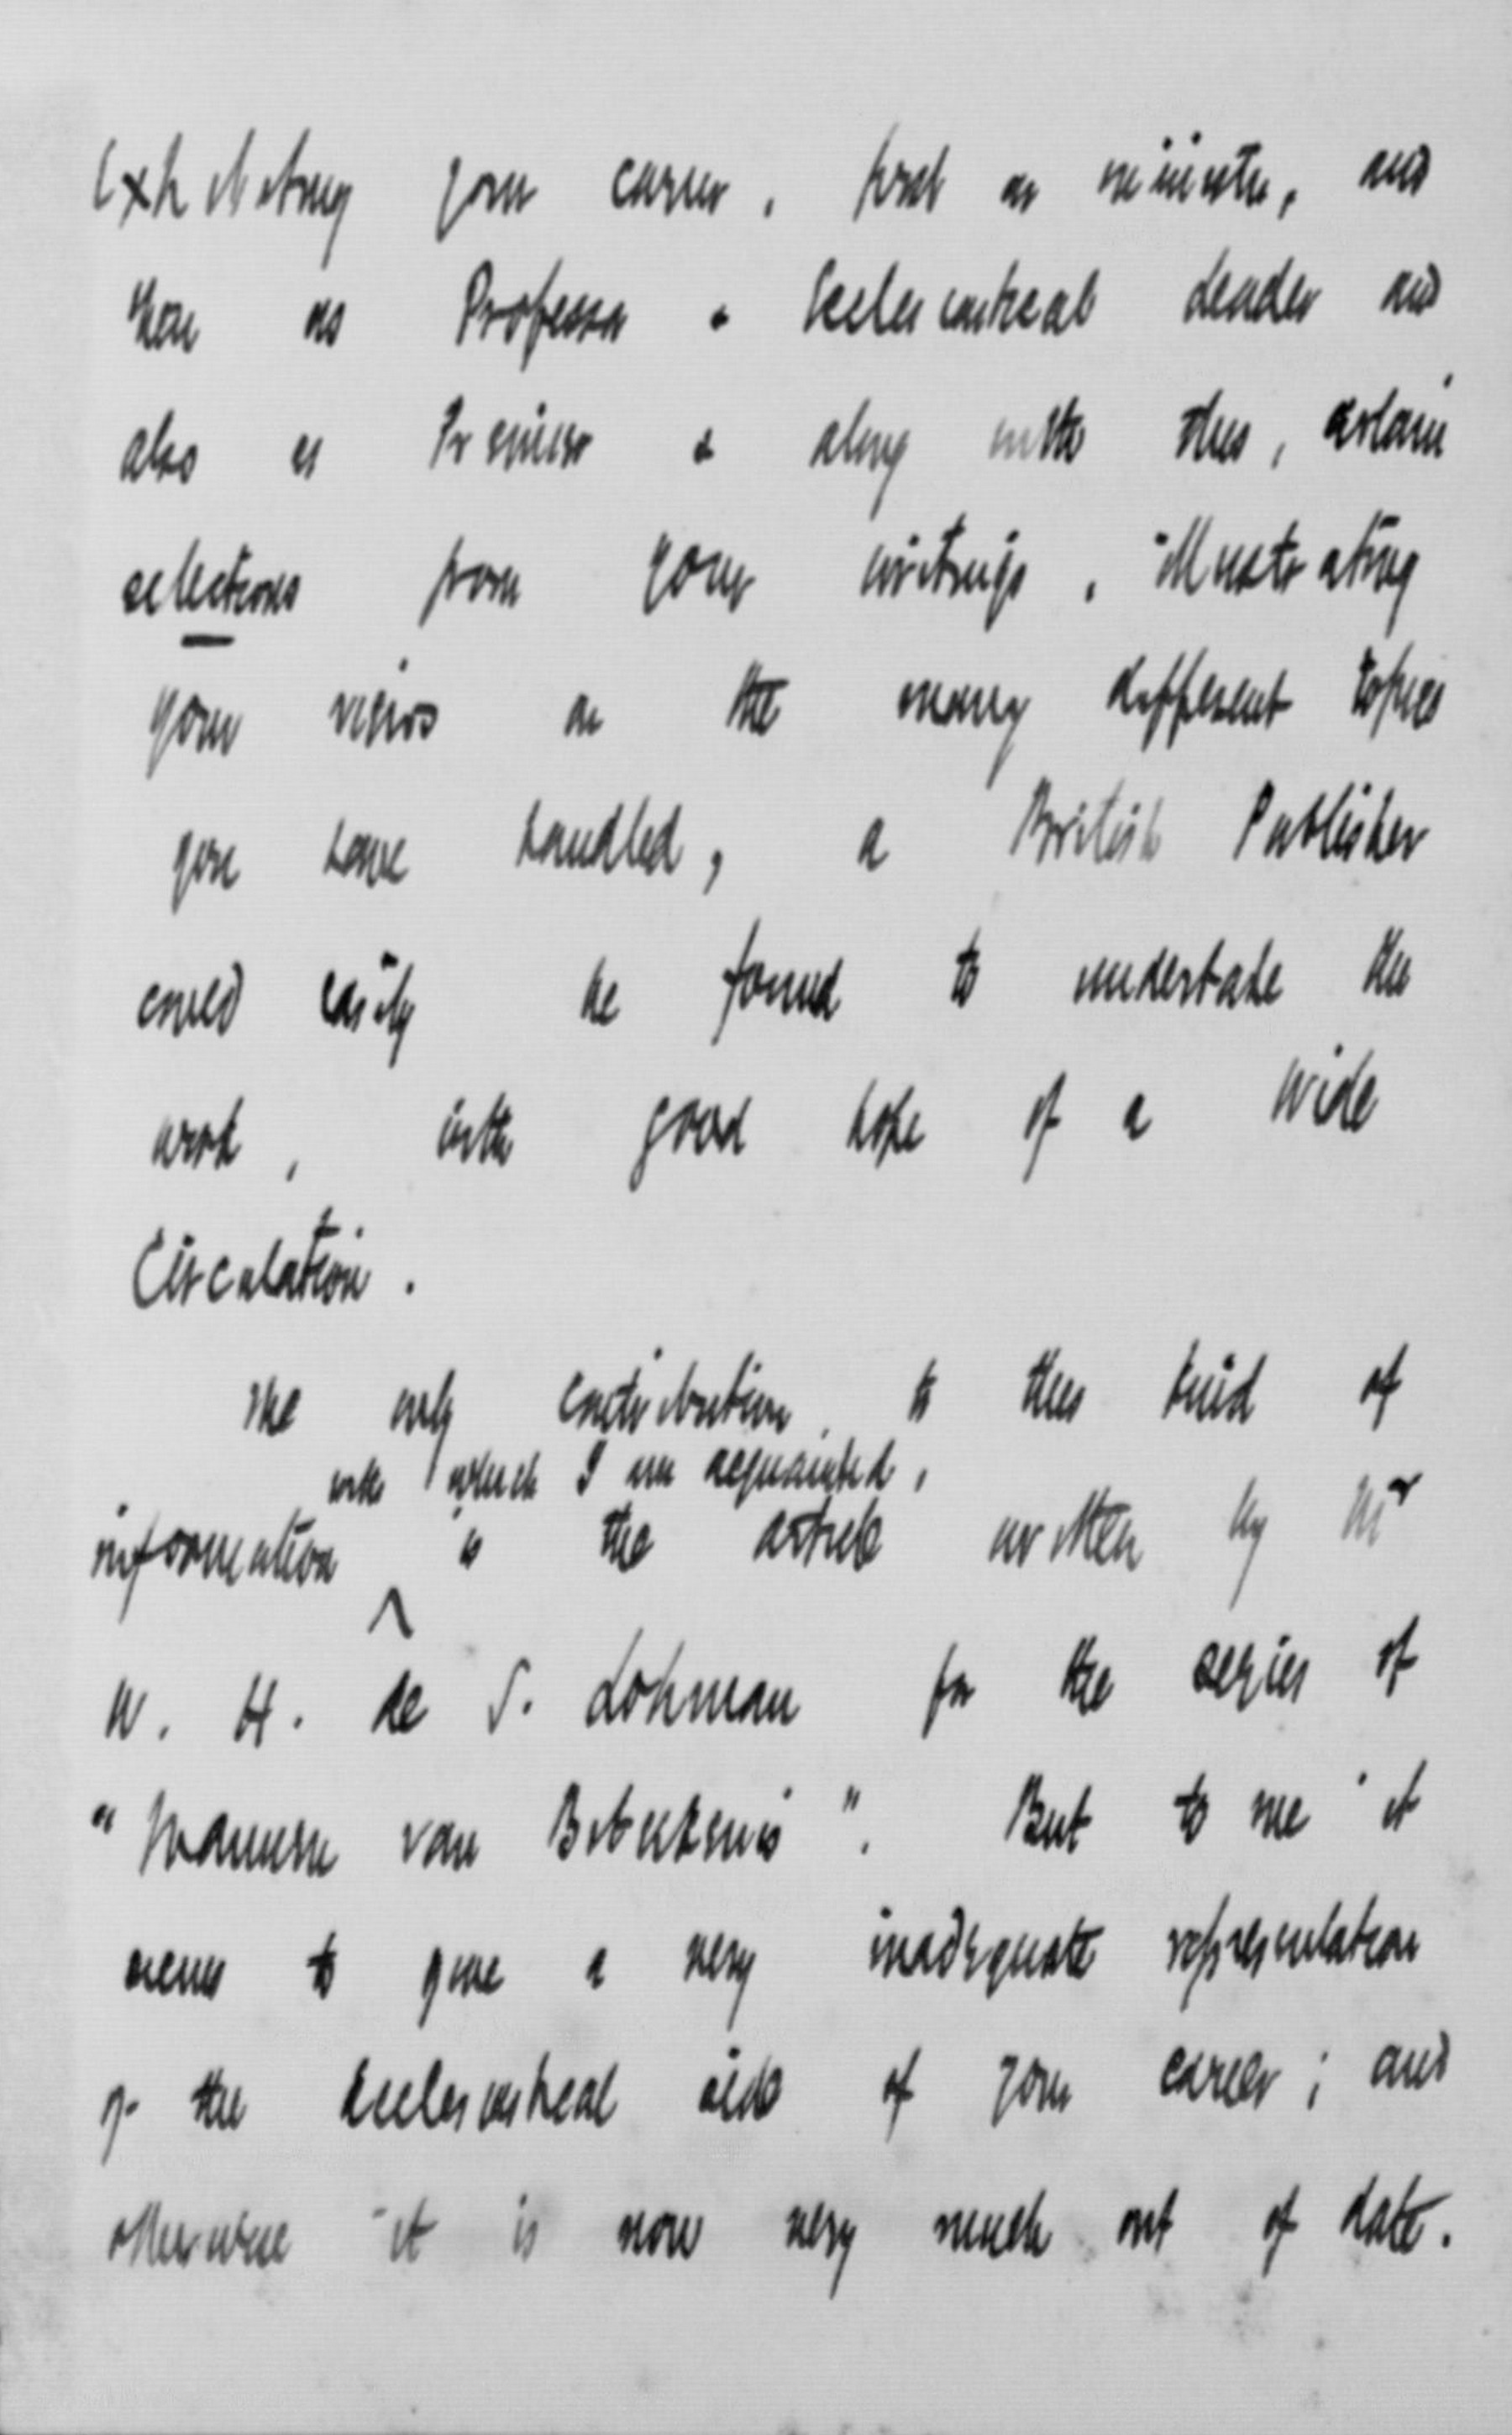 Exhibiting your career, first as minister, and
then as Professor & Ecclesiastical Leader and
also as Premier & along with this, certain
selections from your writings, illustrating
your views on the many different topics
you have handled, a British Publisher
could easily be found to undertake the
work, with good hope of a wide
Circulation.
The only contribution to this kind of
with which I am acquainted,
information is the article written by Mr
W. H. de S. Lohman for the series of
"Mannen van Beteekenis". But to me it
seems to give a very inadequate representation
of the Ecclesiastical side of your career; and
otherwise it is now very much out of date.